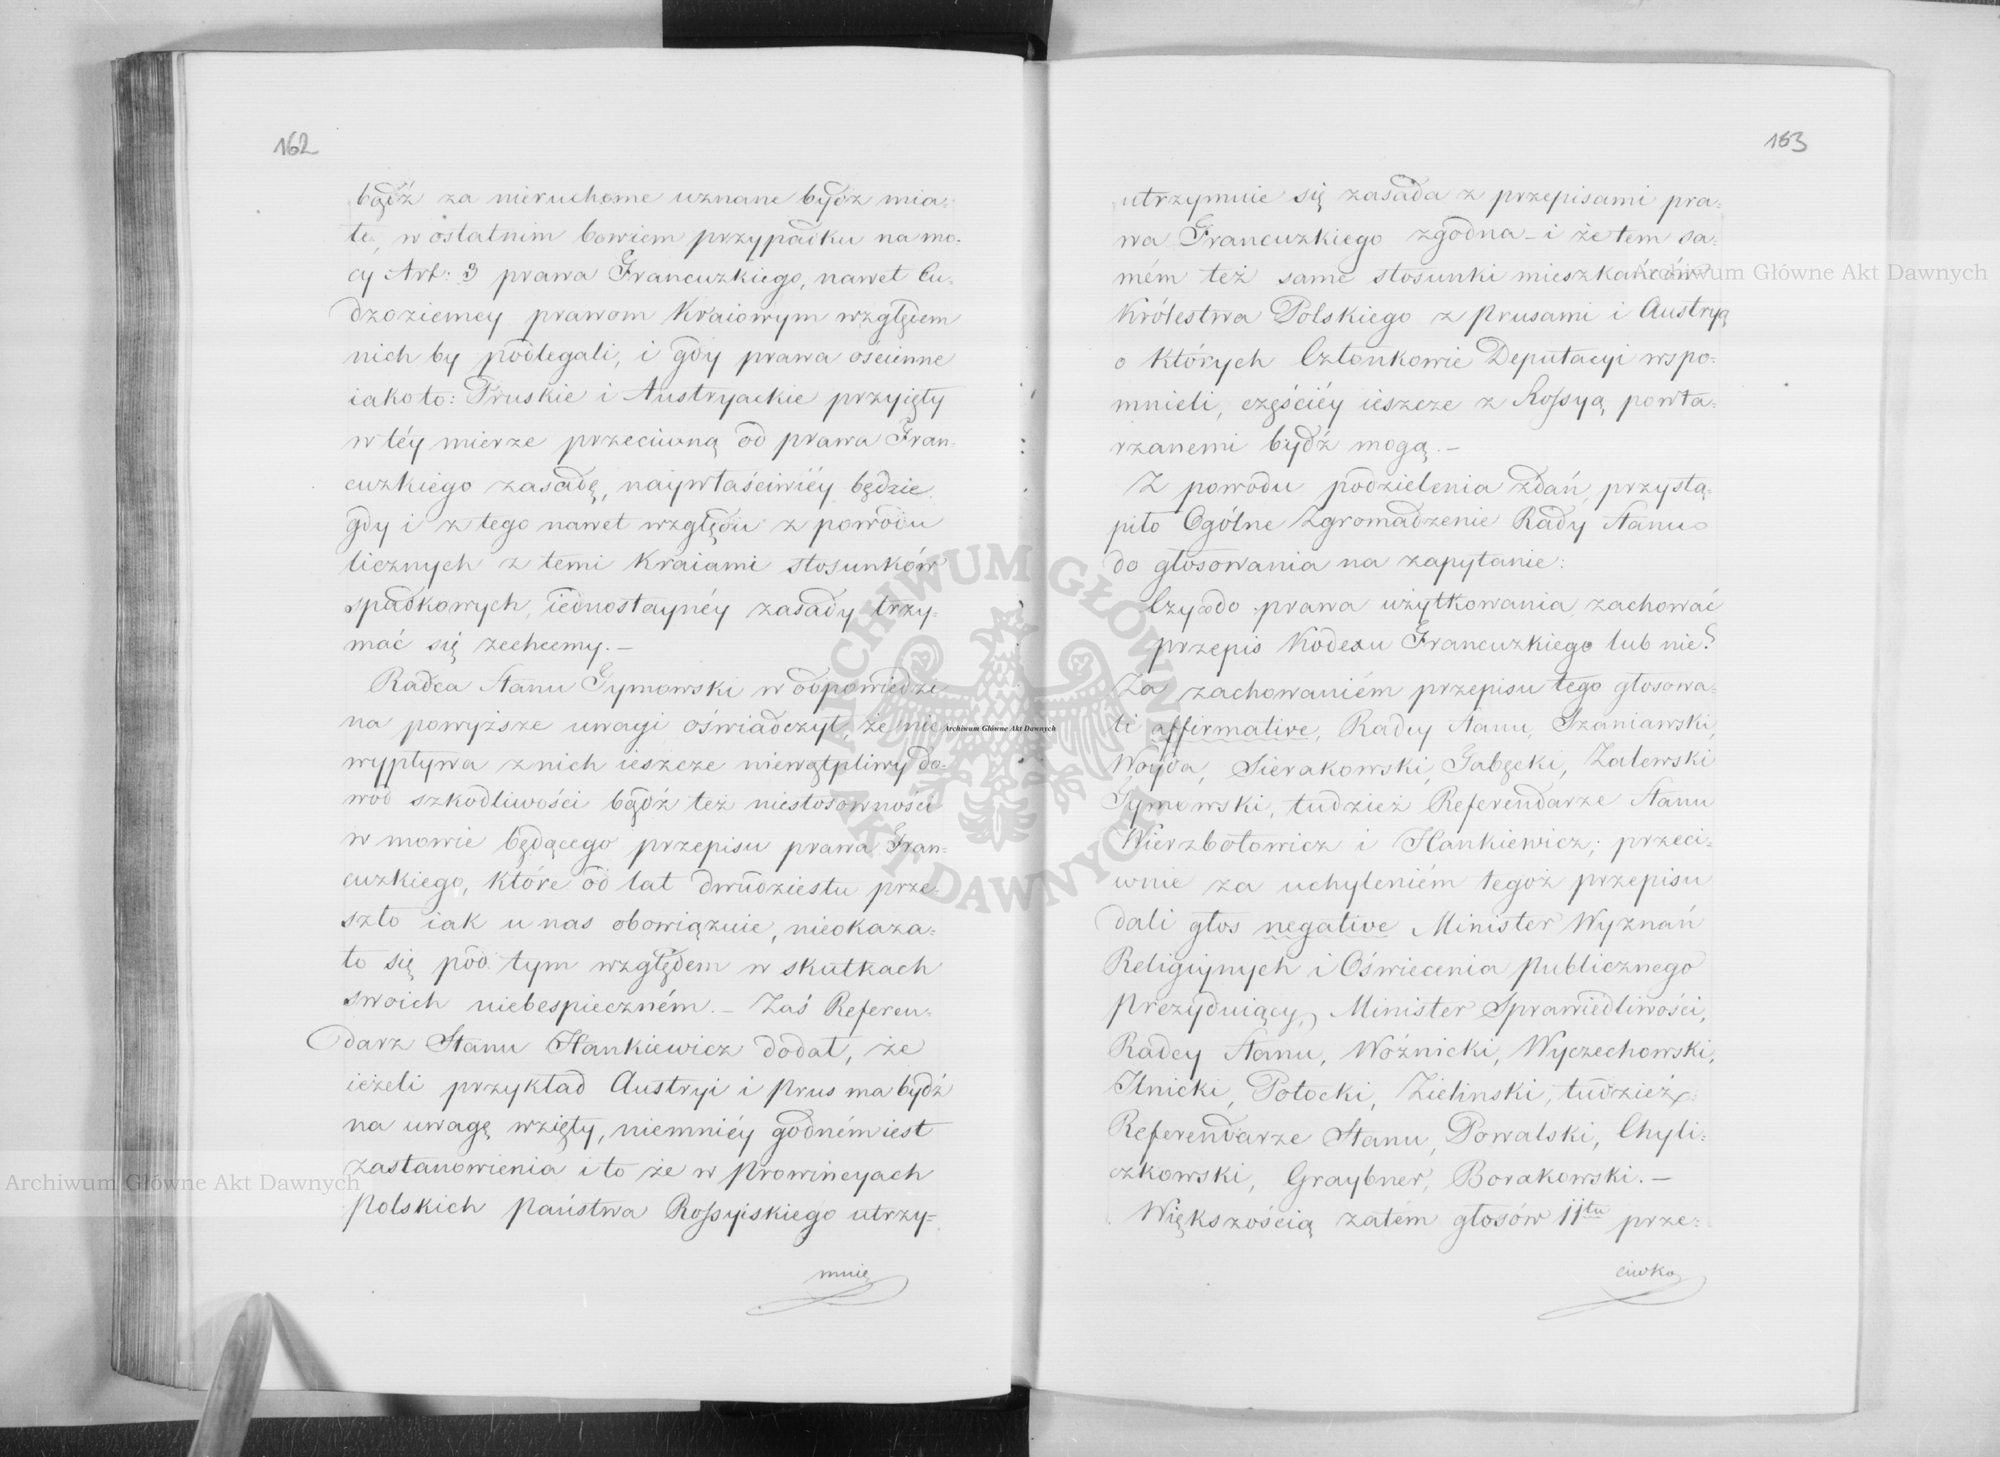 162
bądź za nieruchome uznane bydź mia-
ło, w ostatnim bowiem przypadku na mo-
cy Art: 3 prawa Francuzkiego, nawet Cu-
dzoziemcy prawom Kraiowym względem
nich by podlegali, i gdy prawa oscienne
iako to: Pruskie i Austryackie przyięły
w téy mierze przeciwną od prawa Fran-
cuzkiego zasadę, naywłaściwiéy będzie
gdy i z tego nawet względu z powodu
licznych z temi Kraiami stosunków
spadkowych, iednostaynéy zasady trzy-
mać się zechcemy. –
Radca Stanu Gymowski w odpowiedzi
na powyższe uwagi oświadczył, że nie
wypływa z nich ieszcze niewątpliwy do-
wód szkodliwości bądź też niestosowności
w mowie będącego przepisu prawa Fran-
cuzkiego, które od lat dwudziestu prze-
szło iak u nas obowiązuie, nieokaza-
ło się pod tym względem w skutkach
swoich niebespieczném. – Zaś Referen-
darz Stanu Hankiewicz dodał, że
ieżeli przykład Austryi i Prus ma bydź
na uwagę wzięty, niemniéy godném iest
zastanowienia i to że w Prowincyach
Polskich Państwa Rossyiskiego utrzy-
muie
163
utrzymuie się zasada z przepisami pra-
wa Francuzkiego zgodna – i że tem sa-
mém też same stosunki mieszkańców
Królestwa Polskiego z Prusami i Austryą
o których Członkowie Deputacyi wspo-
mnieli, częściéy ieszcze z Rossyą powta-
rzanemi bydź mogą. –
Z powodu podzielenia zdań, przystą-
piło Ogólne Zgromadzenie Rady Stanu
do głosowania na zapytanie:
Czy co do prawa użytkowania zachować
przepis Kodexu Francuzkiego lub nie?
Za zachowaniém przepisu tego głosowa-
li affirmative, Radcy Stanu, Szaniawski,
Woyda, Sierakowski, Gąbęcki, Zalewski
Gymowski, tudzież Referendarze Stanu
Wierzbołowicz i Hankiewicz; przeci-
wnie za uchyleniém tegoż przepisu
dali głos negative Minister Wyznań
Religiynych i Oświecenia Publicznego
Prezyduiący, Minister Sprawiedliwości,
Radcy Stanu, Woźnicki, Wyczechowski,
Ilnicki, Potocki, Zieliński, tudzież
Referendarze Stanu, Powalski, Chyli-
czkowski, Graybner, Borakowski. –
Większością zatém głosów 11tu prze-
ciwko
Archiwum Główne Akt Dawnych
Archiwum Główne Akt Dawnych
Archiwum Główne Akt Dawnych
ARCHIWUM GŁÓWNE AKT DAWNYCH